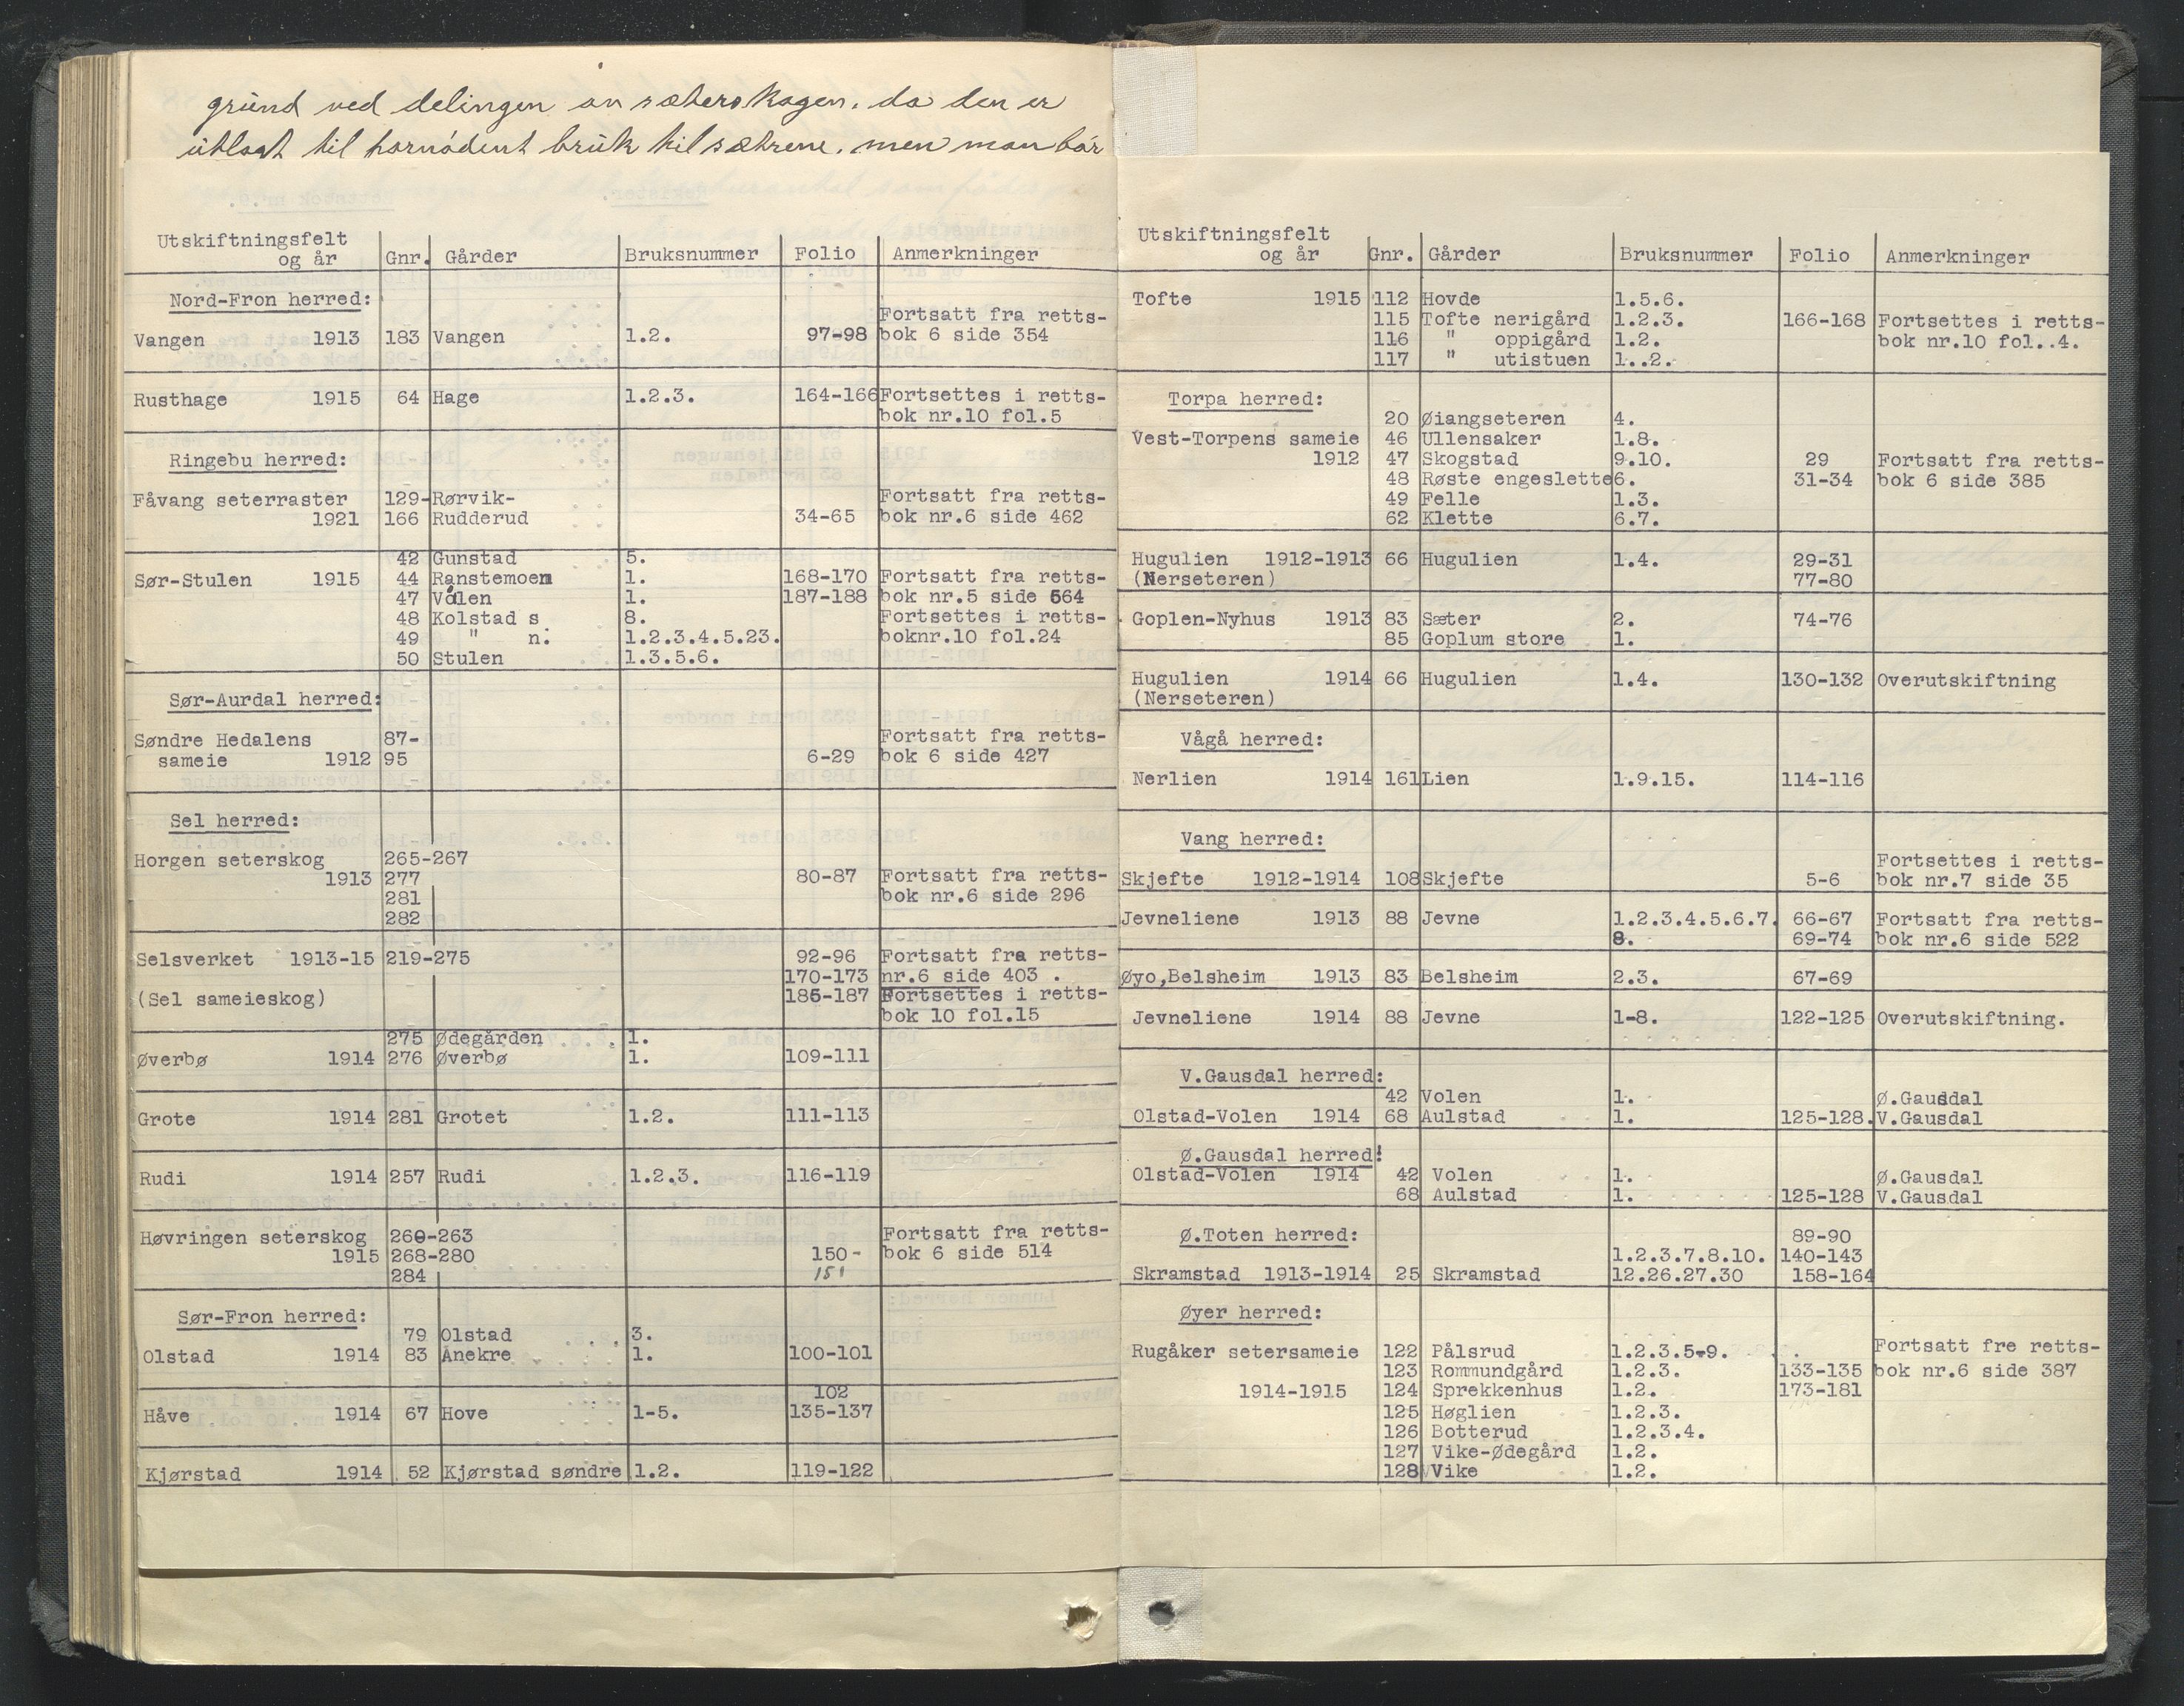 grund ved delingen av sæterskogen, da den er
utlagt til fornødent bruk til sætrene, men man bør
Utskiftningsfelt
og år Gnr. Gårder Bruksnummer Folio Anmerkninger
Nord-Fron herred:
Fortsatt fra retts-
Vangen 1913 183 Vangen 1.2. 97-98 bok 6 side 354
Rusthage 1915 64 Hage 1.2.3. 164-166 Fortsettes i retts-
bok nr.10 fol.5
Ringebu herred:
Fåvang seterraster 129- Rørvik- Fortsatt fra retts-
1921 166 Rudderud 34-65 bok nr.6 side 462
42 Gunstad 5.
Sør-Stulen 1915 44 Ranstemoen 1. 168-170 Fortsatt fra retts-
47 Volen 1. 187-188 bok nr.5 side 564
48 Kolstad s 8. Fortsettes i retts-
49 " n. 1.2.3.4.5.23. boknr.10 fol.24
50 Stulen 1.3.5.6.
Sør-Aurdal herred:
Søndre Hedalens 87- Fortsatt fra retts-
sameie 1912 95 6-29 bok 6 side 427
Sel herred:
Horgen seterskog 265-267
1913 277 80-87 Fortsatt fra retts-
281 bok nr.6 side 296
282
Selsverket 1913-15 219-275 92-96 Fortsatt fra retts-
170-173 nr.6 side 403 .
(Sel sameieskog) 185-187 Fortsettes i retts-
bok 10 fol.15
275 Ødegården 1.
Øverbø 1914 276 Øverbø 1. 109-111
Grote 1914 281 Grotet 1.2. 111-113
Rudi 1914 257 Rudi 1.2.3. 116-119
Høvringen seterskog 260-263 Fortsatt fra retts-
1915 268-280 150- bok 6 side 514
284 151
Sør-Fron herred:
79 Olstad 3.
Olstad 1914 83 Anekre 1. 100-101
102
Håve 1914 67 Hove 1-5. 135-137
Kjørstad 1914 52 Kjørstad søndre 1.2. 119-122
Utskiftningsfelt
og år Gnr. Gårder Bruksnummer Folio Anmerkninger
Tofte 1915 112 Hovde 1.5.6.
115 Tofte nerigård 1.2.3. 166-168 Fortsettes i retts-
116 " oppigård 1.2. bok nr.10 fol..4.
117 " utistuen 1..2.
Torpa herred:
20 Øiangseteren 4.
Vest-Torpens sameie 46 Ullensaker 1.8.
1912 47 Skogstad 9.10. 29 Fortsatt fra retts-
48 Røste engeslette 6. 31-34 bok 6 side 385
49 Felle 1.3.
62 Klette 6.7.
Hugulien 1912-1913 66 Hugulien 1.4. 29-31
(Nerseteren) 77-80
Goplen-Nyhus 1913 83 Sæter 2. 74-76
85 Goplum store 1.
Hugulien 1914 66 Hugulien 1.4. 130-132 Overutskiftning
(Nerseteren)
Vågå herred:
Nerlien 1914 161 Lien 1.9.15. 114-116
Vang herred:
Fortsettes i retts-
Skjefte 1912-1914 108 Skjefte 5-6 bok nr.7 side 35
Jevneliene 1913 88 Jevne 1.2.3.4.5.6.7. 66-67 Fortsatt fra retts-
8. 69-74 bok nr.6 side 522
Øyo,Belsheim 1913 83 Belsheim 2.3. 67-69
Jevneliene 1914 88 Jevne 1-8. 122-125 Overutskiftning.
V.Gausdal herred:
42 Volen 1. Ø.Gausdal
Olstad-Volen 1914 68 Aulstad 1. 125-128. V.Gausdal
Ø.Gausdal herred:
Olstad-Volen 1914 42 Volen 1. Ø.Gausdal
68 Aulstad 1. 125-128 V.Gausdal
Ø.Toten herred: 89-90
1.2.3.7.8.10. 140-143
Skramstad 1913-1914 25 Skramstad 12.26.27.30 158-164
Øyer herred:
Rugåker setersameie 122 Pålsrud 1.2.3.5-9. Fortsatt fre retts-
123 Rommundgård 1.2.3. 133-135 bok nr.6 side 387
1914-1915 124 Sprekkenhus 1.2. 173-181
125 Høglien 1.2.3.
126 Botterud 1.2.3.4.
127 Vike-Ødegård 1.2.
128 Vike 1.2.